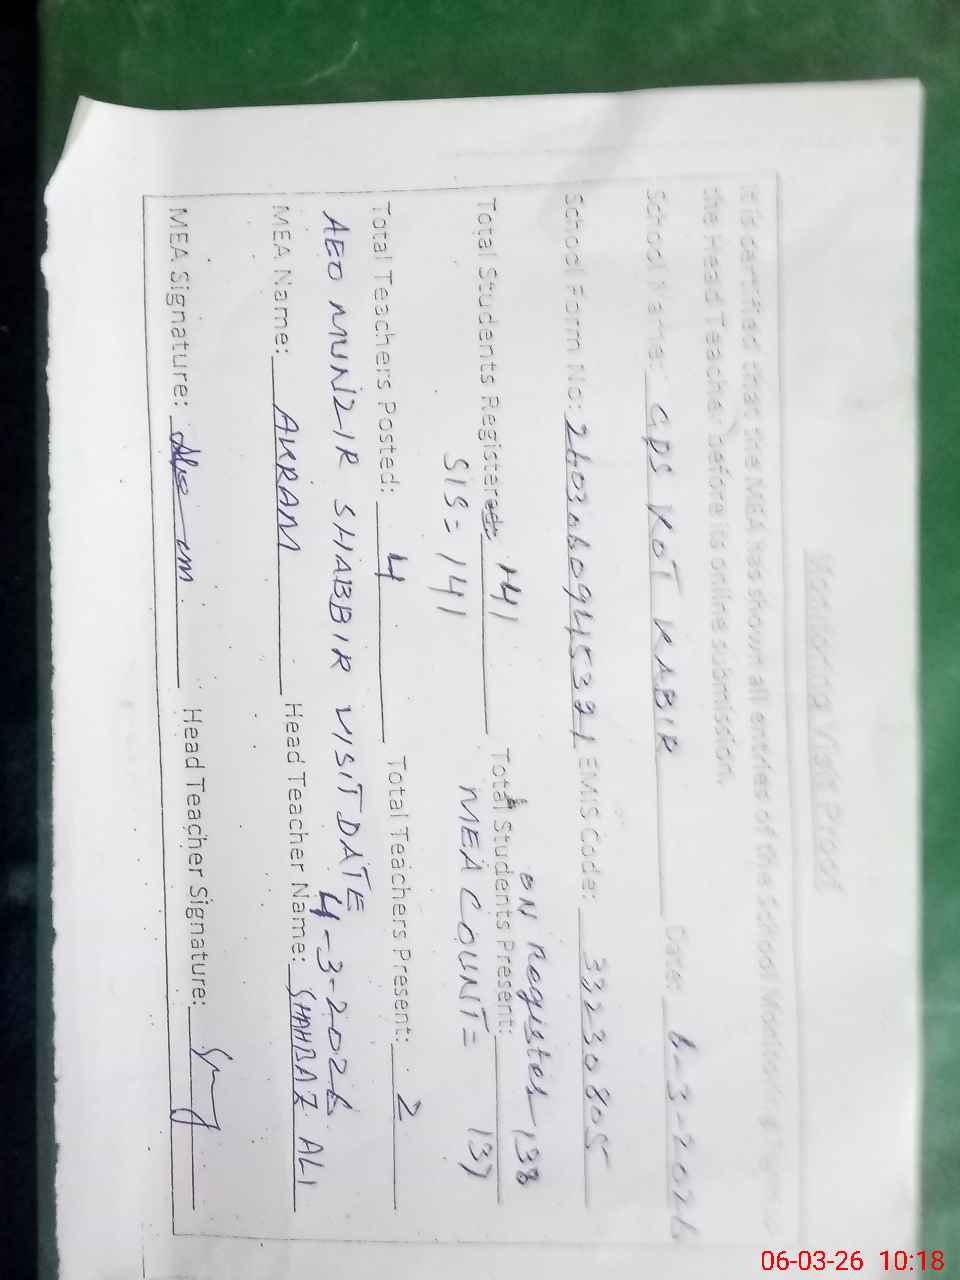 Monitoring Visit Proof
It is certified that the MEA has shown all entries of the School Monitoring Form to
the Head Teacher before its online submission.
School Name: GPS KOT KABIR Date: 6-3-2026
School Form No: EMIS Code: 33230805
ON Register 138
Total Students Registered: 141 Total Students Present:
SIS = 141 MEA COUNT = 137
Total Teachers Posted: 4 Total Teachers Present: 2
AEO MUNZIR SHABBIR VISIT DATE 4-3-2026
MEA Name: AKRAM Head Teacher Name: SHAHBAZ ALI
MEA Signature: Head Teacher Signature:
06-03-26 10:18